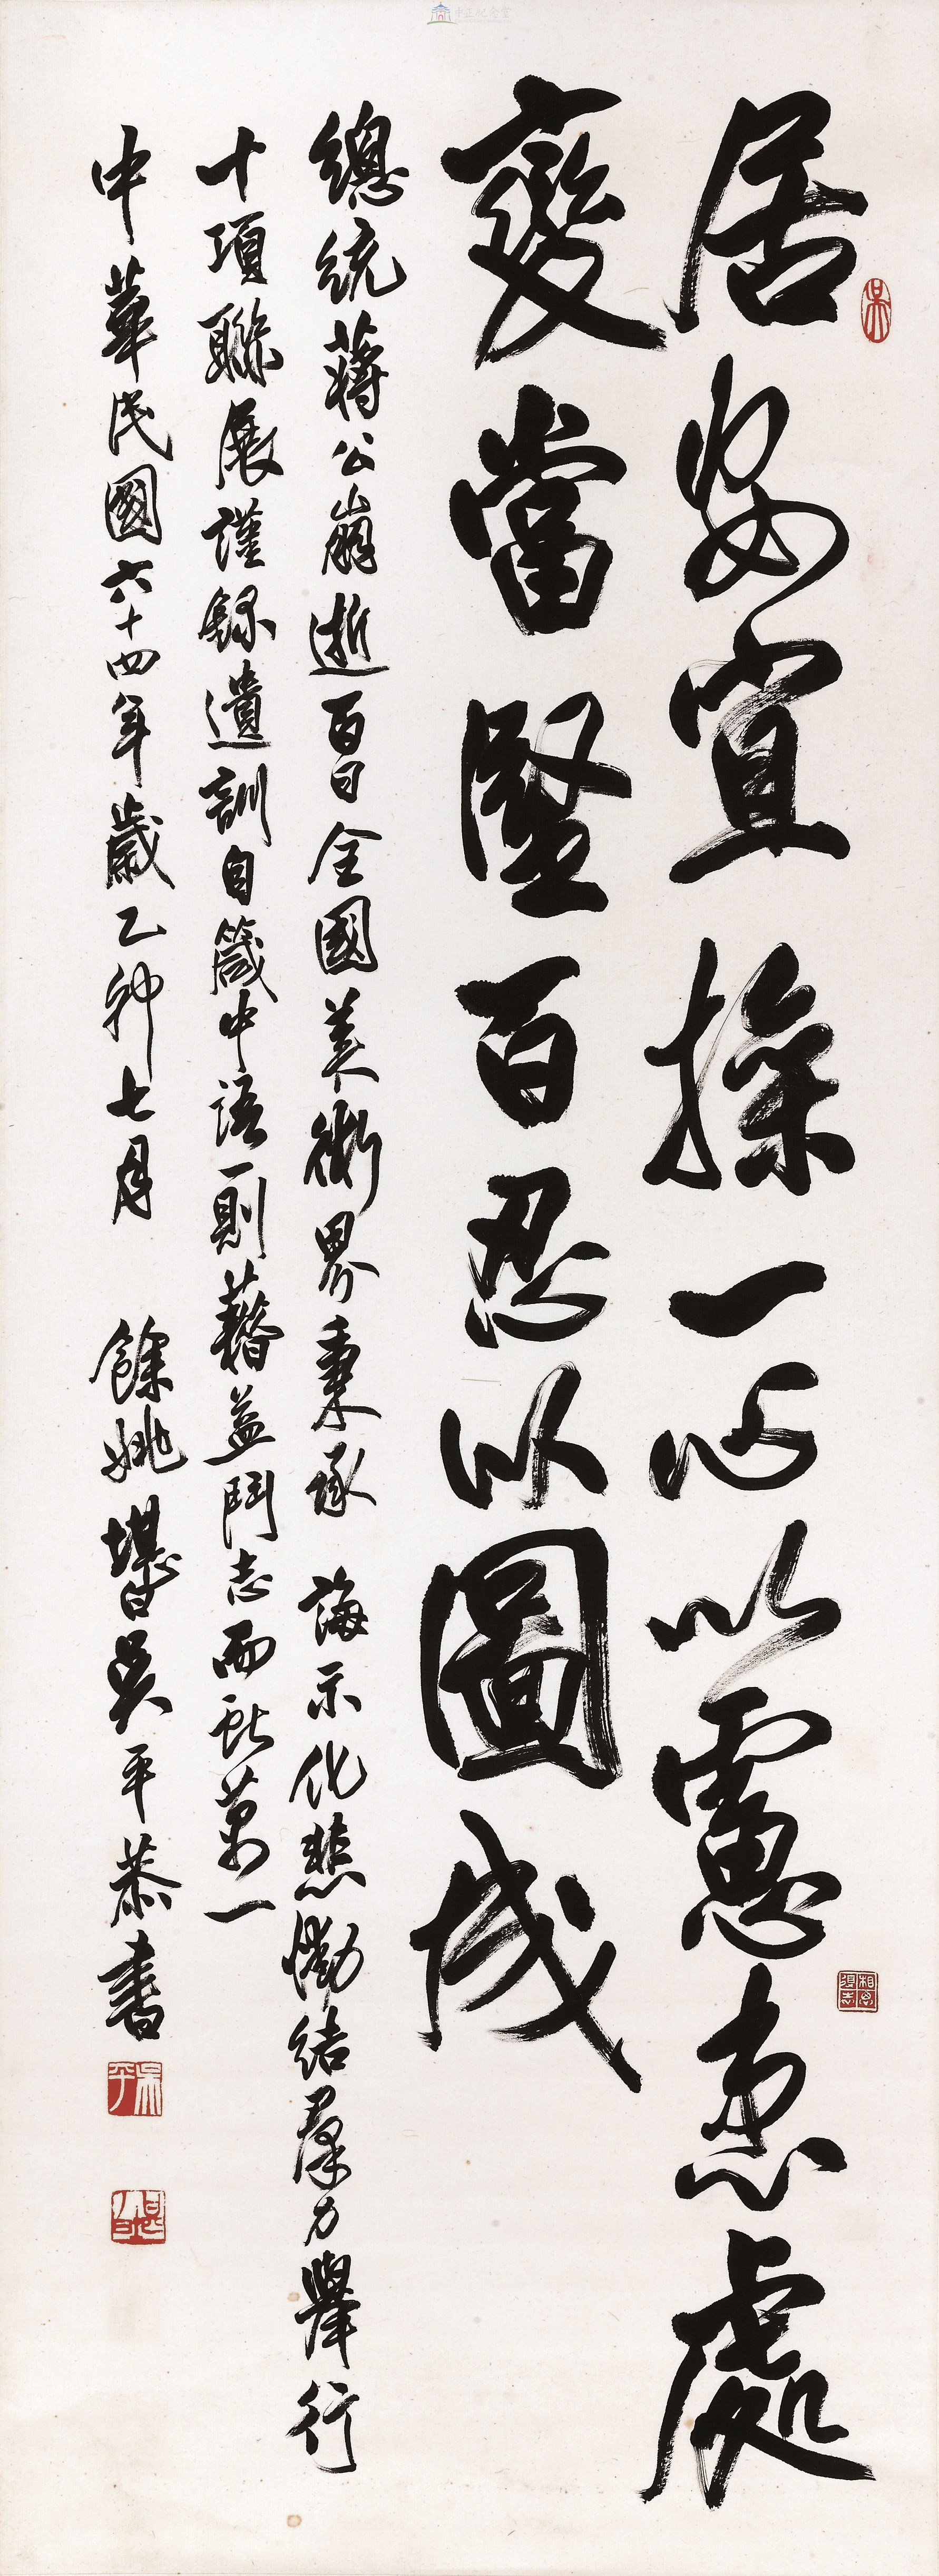 居安宜操一心以慮患處
變當堅百忍以圖成
總統蔣公崩逝百日全國美術界秉承 誨示化悲慟結群力舉行
十項聯展謹錄遺訓自箴中語一則藉益鬥志而獻萬一
中華民國六十四年歲乙卯七月 餘姚堪白吳平恭書
吳
吳平
中正紀念堂